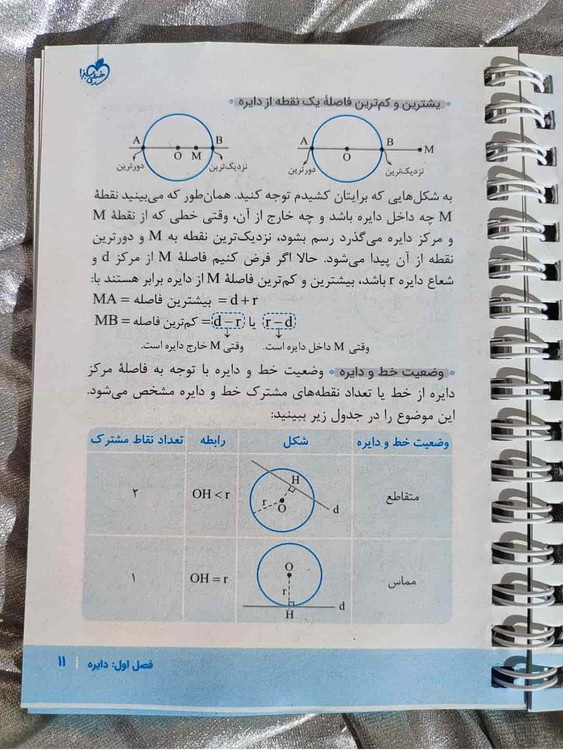 خیلی سبز
بیشترین و کم‌ترین فاصلهٔ یک نقطه از دایره
A B O M
دورترین نزدیک‌ترین
A B O M
دورترین نزدیک‌ترین
به شکل‌هایی که برایتان کشیدم توجه کنید. همان‌طور که می‌بینید نقطهٔ
M چه داخل دایره باشد و چه خارج از آن، وقتی خطی که از نقطهٔ M
و مرکز دایره می‌گذرد رسم بشود، نزدیک‌ترین نقطه به M و دورترین
نقطه از آن پیدا می‌شود. حالا اگر فرض کنیم فاصلهٔ M از مرکز d و
شعاع دایره r باشد، بیشترین و کم‌ترین فاصلهٔ M از دایره برابر هستند با:
MA = بیشترین فاصله = d + r
MB = کم‌ترین فاصله = d − r یا r − d
وقتی M داخل دایره است. وقتی M خارج دایره است.
وضعیت خط و دایره وضعیت خط و دایره با توجه به فاصلهٔ مرکز
دایره از خط یا تعداد نقطه‌های مشترک خط و دایره مشخص می‌شود.
این موضوع را در جدول زیر ببینید:
وضعیت خط و دایره شکل رابطه تعداد نقاط مشترک
متقاطع H r O d OH < r ۲
مماس O r H d OH = r ۱
فصل اول: دایره | ۱۱